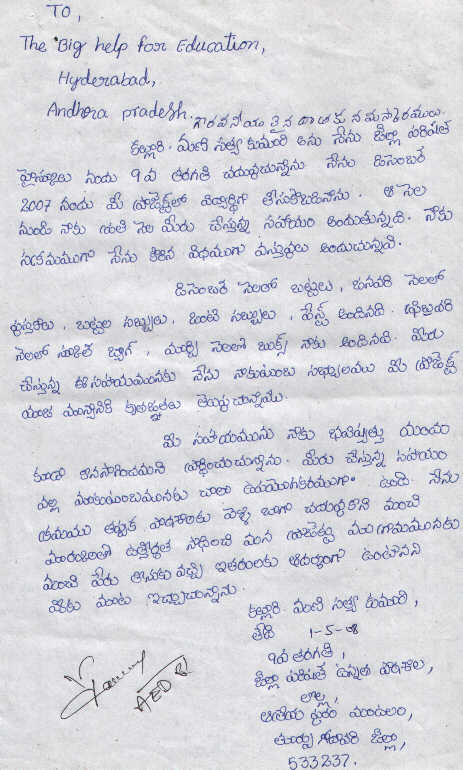 TO,
The Big help for Education,
Hyderabad,
Andhra pradesh.
గౌరవనీయులైన దాతకు నమస్కారములు.
కల్లూరి. మణి సత్య కుమారి అను నేను జిల్లా పరిషత్
హైస్కూలు నందు 9వ తరగతి చదువుచున్నాను. నేను డిసెంబర్
2007 నందు మీ ప్రాజెక్ట్‌లో విద్యార్థిగా తీసుకోబడినాను. ఆ నెల
నుండి నాకు ప్రతి నెల మీరు చేస్తున్న సహాయం అందుతున్నది. నాకు
సక్రమముగా నేను కోరిన విధముగా వస్తువులు అందుచున్నవి.
డిసెంబర్ నెలలో బట్టలు, జనవరి నెలలో
పుస్తకాలు, బట్టల సబ్బులు, ఒంటి సబ్బులు, పేస్ట్ అందినది. ఫిబ్రవరి
నెలలో స్కూల్ బ్యాగ్, మార్చి నెలలో బుక్స్ నాకు అందినవి. మీరు
చేస్తున్న ఈ సహాయమునకు నేను నా కుటుంబ సభ్యులము మీ ప్రాజెక్ట్
కృతజ్ఞతలు తెలుపు చున్నాము.
మీ సహాయమును నాకు భవిష్యత్తు యందు
కూడా కొనసాగించమని ప్రార్థించుచున్నాను. మీరు చేస్తున్న సహాయం
వల్ల మా కుటుంబమునకు చాలా ఉపయోగకరముగా ఉంది. నేను
క్రమము తప్పక పాఠశాలకు వెళ్ళి బాగా చదువుకొని మంచి
ఉత్తీర్ణత సాధించి మన ప్రాజెక్టుకు మా గ్రామమునకు
మంచి పేరు తీసుకు వచ్చి ఇతరులకు ఆదర్శంగా ఉంటానని
మాట ఇచ్చుచున్నాను.
కల్లూరి మణి సత్య కుమారి,
తేది 1-5-08
9వ తరగతి,
జిల్లా పరిషత్ ఉన్నత పాఠశాల,
లొల్ల,
ఆత్రేయ పురం మండలం,
తూర్పు గోదావరి జిల్లా,
533237.
AED